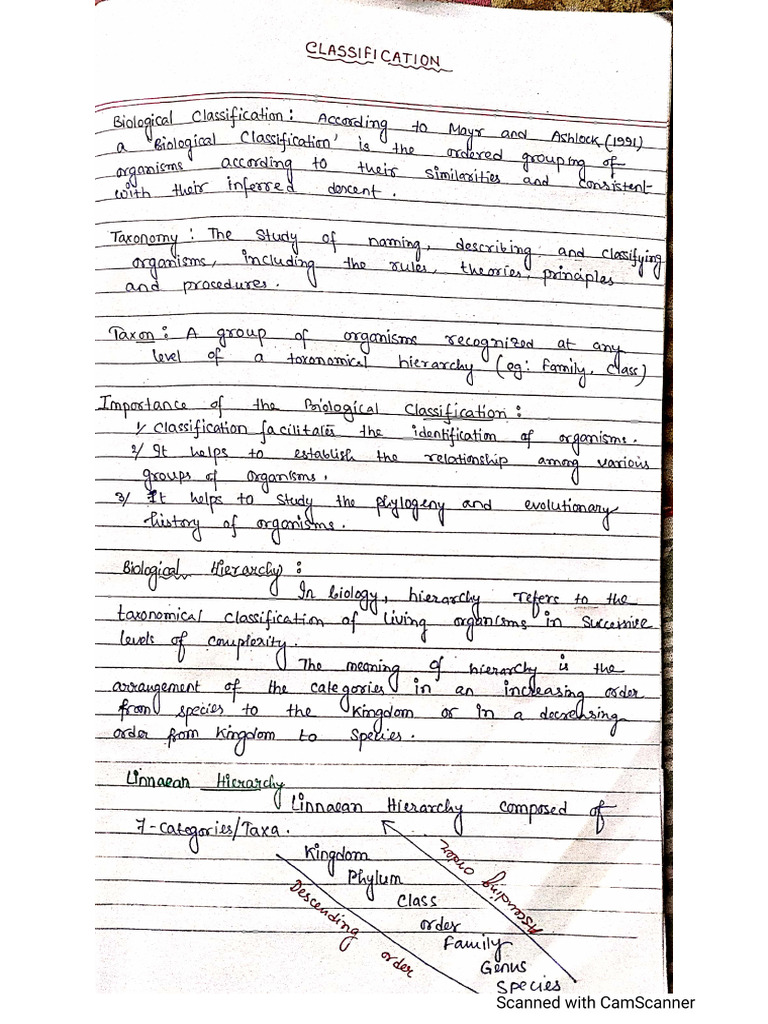 CLASSIFICATION
Biological Classification: According to Mayr and Ashlock (1991)
a 'Biological Classification' is the ordered grouping of
organisms according to their similarities and consistent
with their inferred descent.
Taxonomy: The study of naming, describing and classifying
organisms, including the rules, theories, principles
and procedures.
Taxon: A group of organisms recognized at any
level of a taxonomical hierarchy (eg: Family, class)
Importance of the Biological Classification:
1/ Classification facilitates the identification of organisms.
2/ It helps to establish the relationship among various
groups of organisms.
3/ It helps to study the phylogeny and evolutionary
history of organisms.
Biological Hierarchy:
In biology, hierarchy refers to the
taxonomical classification of living organisms in successive
levels of complexity.
The meaning of hierarchy is the
arrangement of the categories in an increasing order
from species to the Kingdom or in a decreasing
order from Kingdom to Species.
Linnaean Hierarchy
Linnaean Hierarchy composed of
7-categories/Taxa.
Kingdom
Phylum
Class
order
Family
Genus
Species
Descending order
Ascending order
Scanned with CamScanner